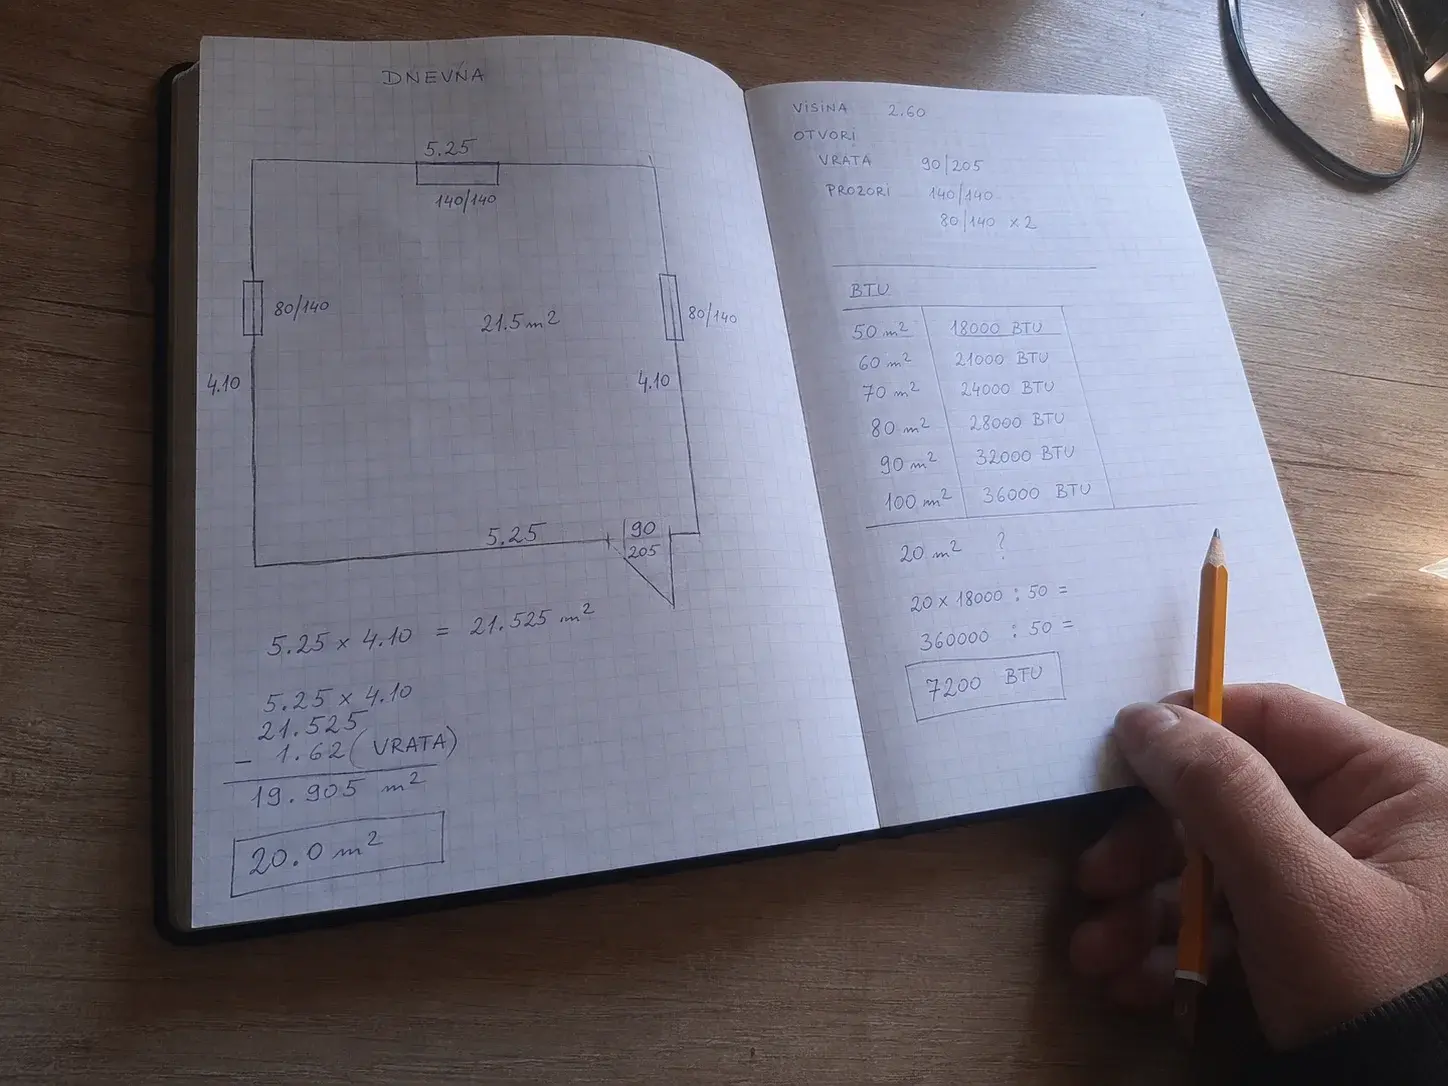 DNEVNA
5.25
140/140
80/140
21.5 m²
80/140
4.10
4.10
5.25
90
205
5.25 x 4.10 = 21.525 m²
5.25 x 4.10
21.525
- 1.62 (VRATA)
19.905 m²
20.0 m²
VISINA 2.60
OTVORI
VRATA 90/205
PROZORI 140/140
80/140 x 2
BTU
50 m² 18000 BTU
60 m² 21000 BTU
70 m² 24000 BTU
80 m² 28000 BTU
90 m² 32000 BTU
100 m² 36000 BTU
20 m² ?
20 x 18000 : 50 =
360000 : 50 =
7200 BTU